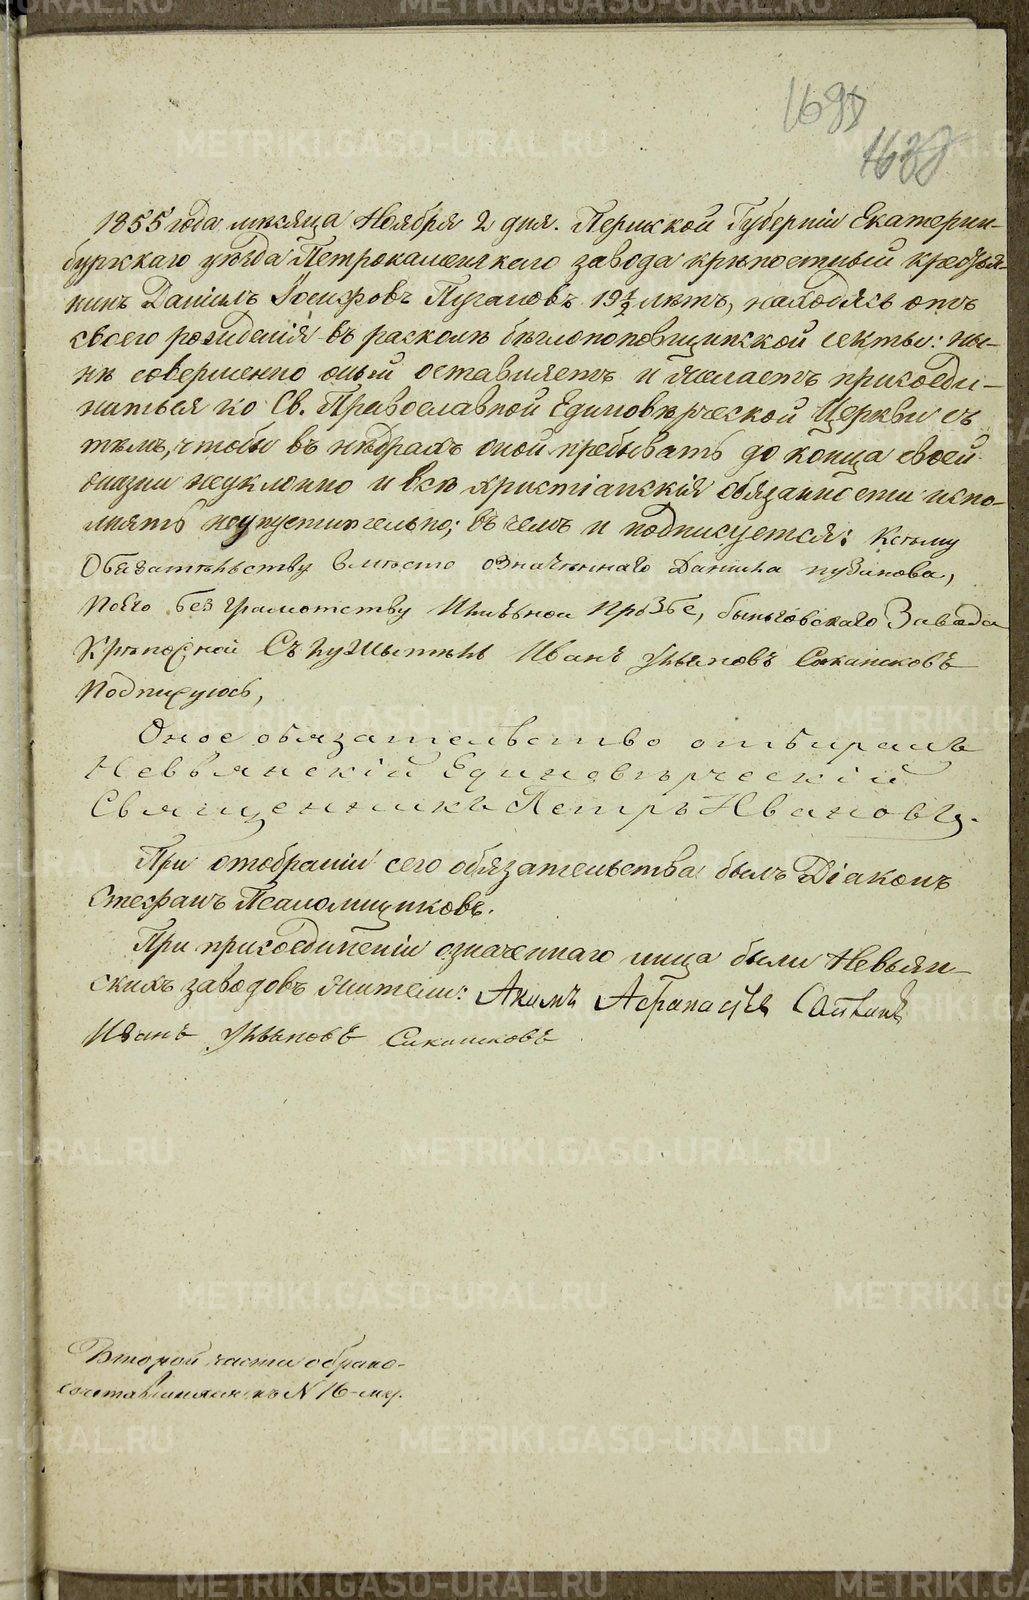 1855 года мѣсяца Ноября 2 дня. Пермской Губернiи Екатерин-
бургскаго уѣзда Петрокаменскаго завода крѣпостный крестья-
нинъ Данiилъ Iосифовъ Пузановъ 19½ лѣтъ, находясь отъ
своего рожденiя въ расколѣ бѣглопоповщинской секты: ны-
нѣ совершенно оный оставляетъ и желаетъ присоеди-
ниться ко Св. Православной Единовѣрческой Церкви съ
тѣмъ, чтобы въ нѣдрахъ оной пребывать до конца своей
жизни неуклонно и всѣ христiанскiя обязанности испо-
лнять неупустительно; въ чемъ и подписуется: Ксему
Обязательству вместо означеннаго Данила пузанова,
поего безграмотству Илиѣной прозбе, быньговскаго Завода
Крѣпосной Служытель Иванъ Ульяновъ
Подписуюсь,
Оное обязательство отбиралъ
Невьянскiй Единовѣрческiй
Священникъ Петръ Ивановъ.
При отобранiи сего обязательства былъ Дiаконъ
Стефанъ Псаломщиковъ.
При присоединенiи означеннаго лица были Невьян-
скихъ заводовъ жители: Акимъ
Иванъ Ульяновъ
Второй части о брако-
сочетавшихся къ N 16-му.
1698
METRIKI.GASO-URAL.RU